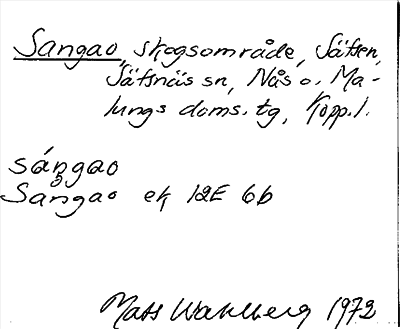 Sangao, skogsområde, Säfsen,
Säfsnäs sn, Nås o. Ma-
lungs doms. tg, Kopp.l.
sángao
Sångao ek 12E 6b
Mats Wahlberg 1972